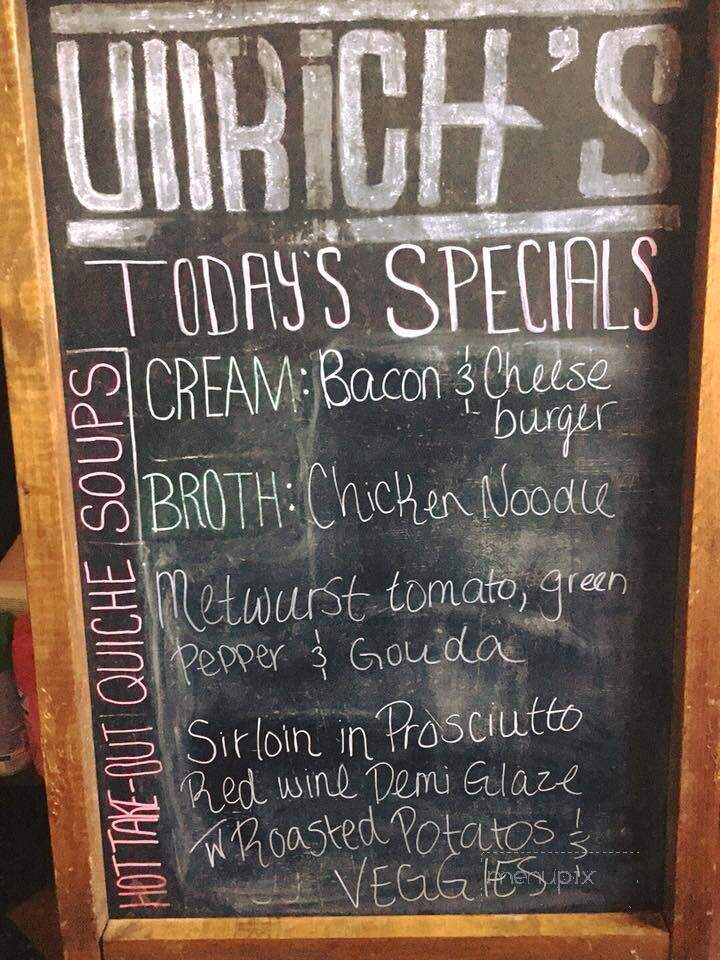 UllRiCH'S
TODAY'S SPECIALS
SOUPS
CREAM: Bacon & Cheese
burger
BROTH: Chicken Noodle
QUICHE
Metwurst tomato, green
Pepper & Gouda
HOT TAKE-OUT
Sirloin in Prosciutto
Red wine Demi Glaze
w Roasted Potatos &
VEGGIES
menupix